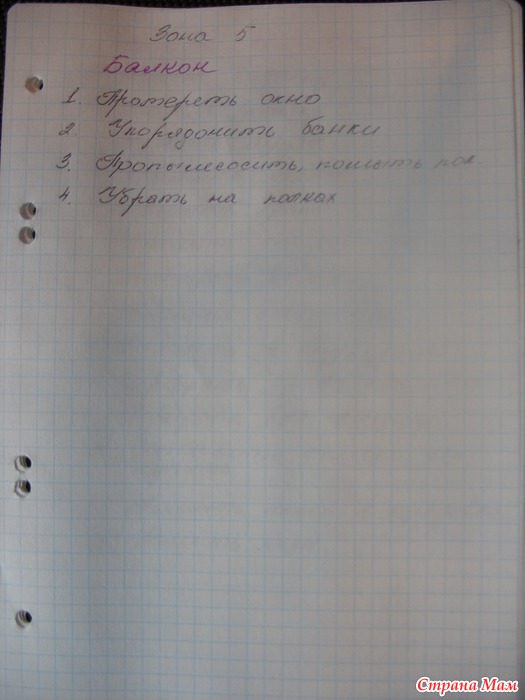 Зона 5
Балкон
1. Протереть окно
2 Упорядочить банки
3. Пропылесосить, помыть пол.
4. Убрать на полках
Страна Мам